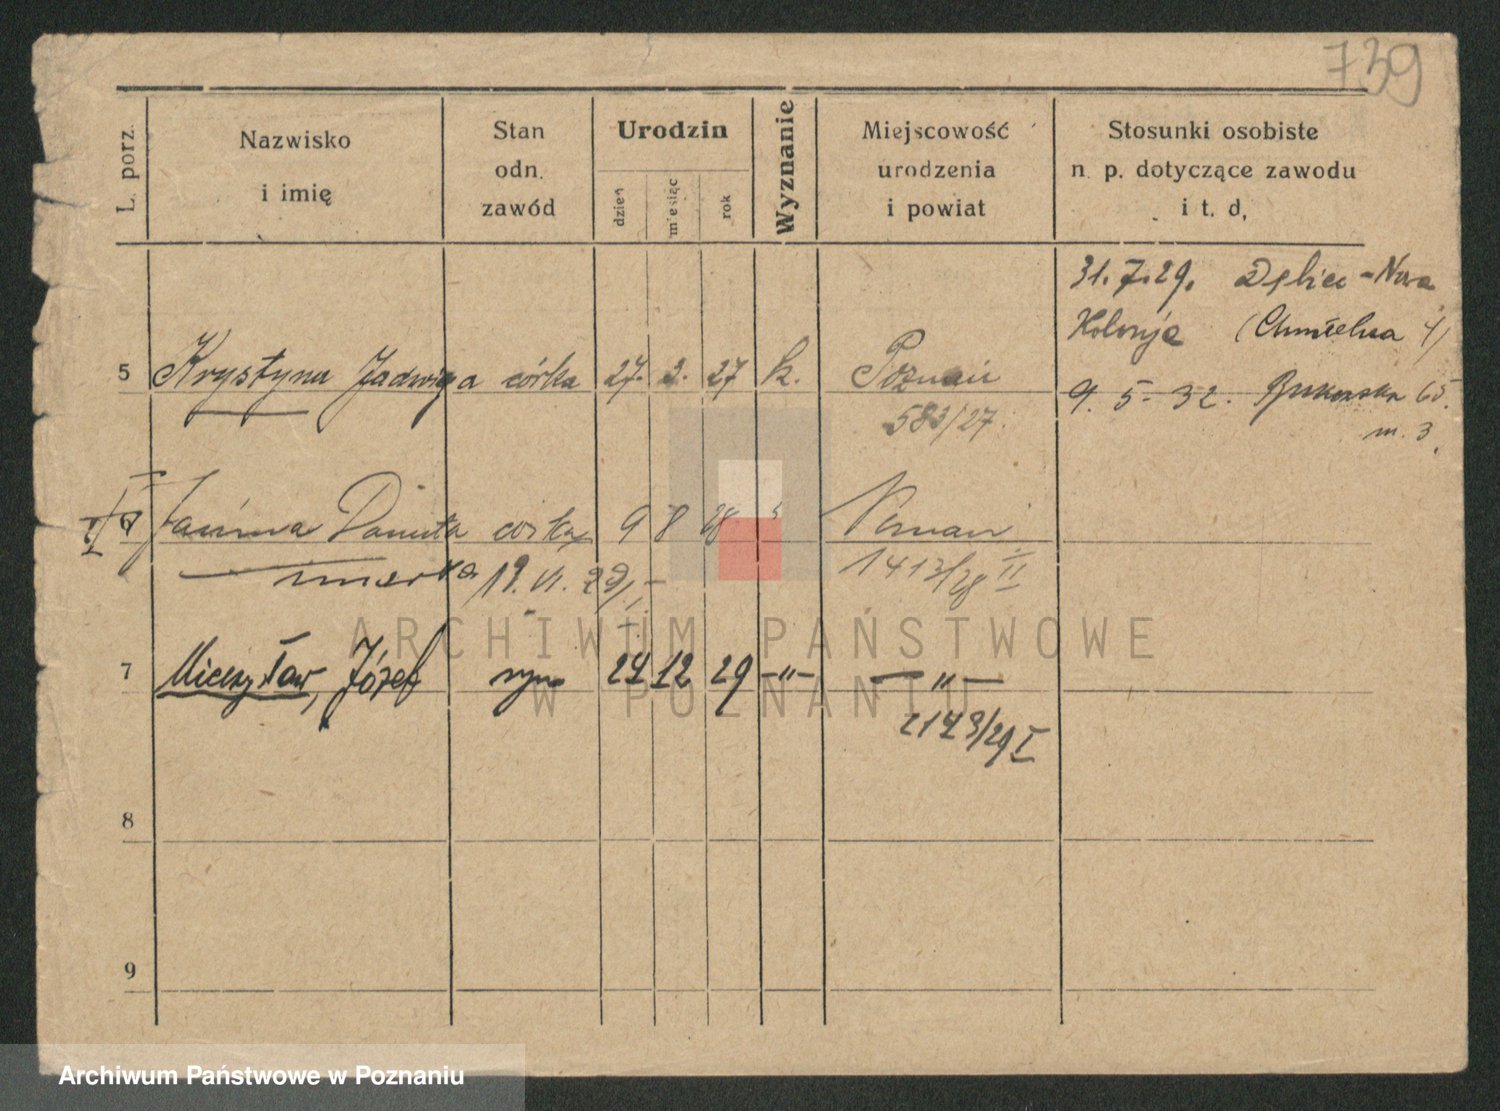 739
L. porz.
Nazwisko
i imię
Stan
odn.
zawód
Urodzin
dzień
miesiąc
rok
Wyznanie
Miejscowość
urodzenia
i powiat
Stosunki osobiste
n. p. dotyczące zawodu
i t. d,
31. 7. 29. Dębiec - Nowa
Kolonja (Chmielna 4)
5 Krystyna Jadwiga córka 27. 2. 27 k. Poznań
583/27
9. 5 - 32. Bukowska 65.
m. 3.
6 Janina Danuta córka 9 8 28 Poznań
zmarła 19. VI. 29
1413/28 II
7 Mieczysław, Józef syn 24 12 29 -"- -"-
2173/29 I
8
9
ARCHIWUM PAŃSTWOWE
W POZNANIU
Archiwum Państwowe w Poznaniu